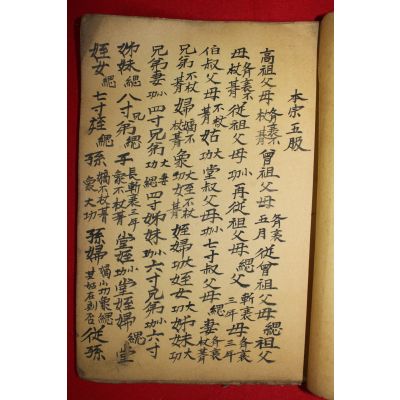 本宗五服
高祖父母齊衰不杖朞曾祖父母五月齊衰從曾祖父母緦祖父
母齊衰不杖朞從祖父母小功再從祖父母緦父斬衰三年母齊衰三年
伯叔父母不杖朞姑大功堂叔父母小功七寸叔父母緦妻齊衰杖朞
兄弟不杖朞婦嫡不杖朞衆大功女不杖朞姪婦大功姪女大功姊妹大功
兄弟妻小功四寸兄弟大功妻緦四寸姊妹小功六寸兄弟小功六寸
姊妹緦八寸兄弟緦子長斬三年衆不杖朞堂姪小功堂姪婦緦堂
姪女緦七寸姪緦孫嫡不杖朞衆大功孫婦嫡小功衆緦其姑在則否從孫